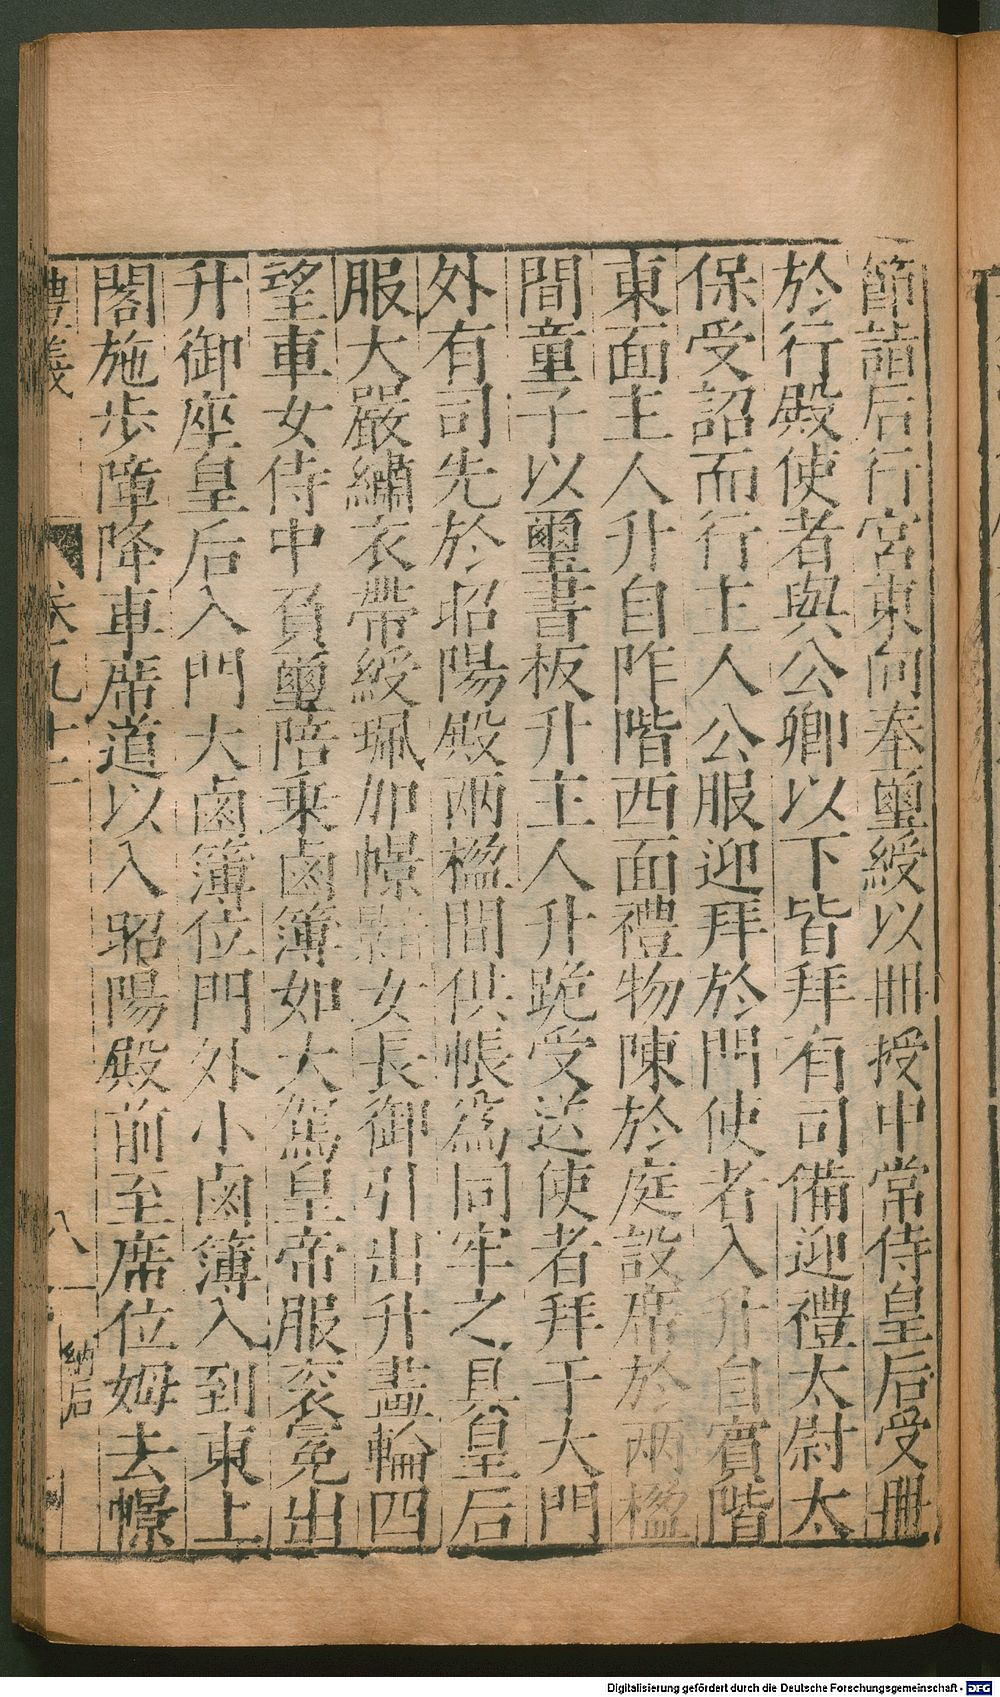 節詣后行宮東向奉璽綬以冊授中常侍皇后受冊
於行殿使者與公卿以下皆拜有司備迎禮太尉太
保受詔而行主人公服迎拜於門使者入升自賓階
東面主人升自阼階西面禮物陳於庭設席於兩楹
間童子以璽書板升主人升跪受送使者拜于大門
外有司先於昭陽殿兩楹間供帳爲同牢之具皇后
服大嚴繡衣帶綬珮加幜女長御引出升畫輪四
望車女侍中負璽陪乘鹵簿如大駕皇帝服衮冕出
升御座皇后入門大鹵簿位門外小鹵簿入到東上
閣施步障降車席道以入昭陽殿前至席位姆去幜
禮義 卷五九十二 八 納后
Digitalisierung gefördert durch die Deutsche Forschungsgemeinschaft - DFG